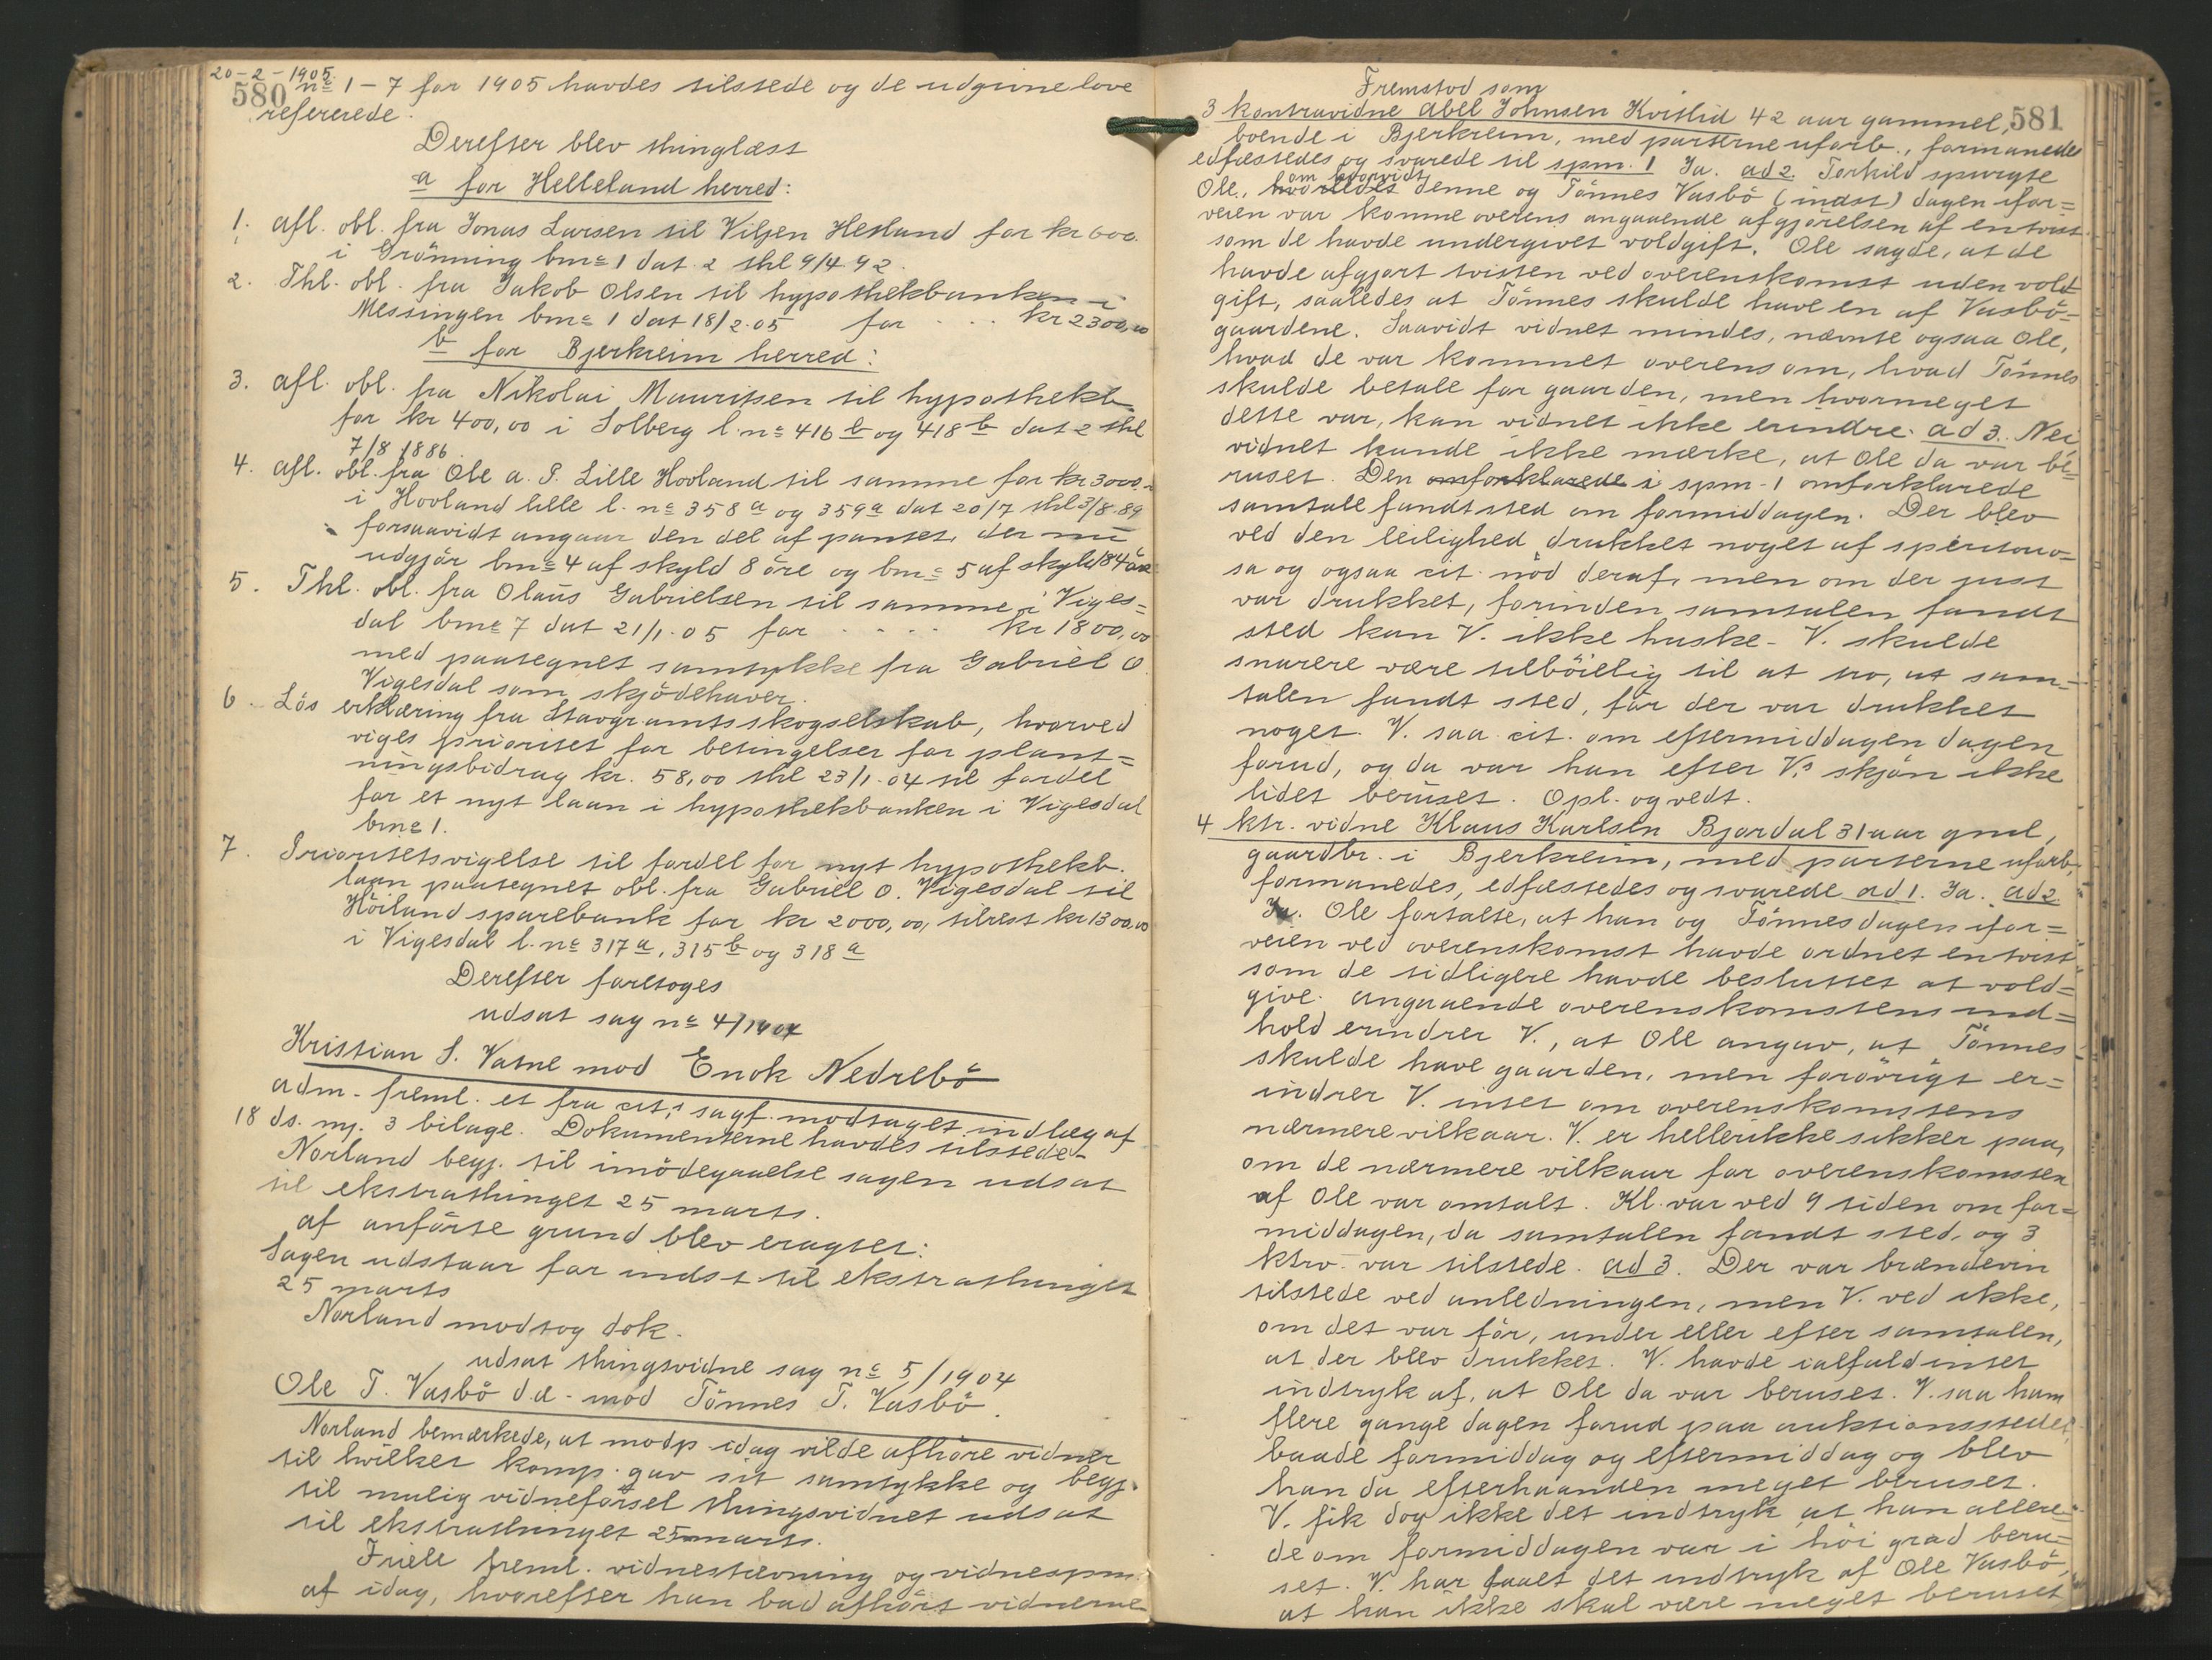 20-2-1905.
580 nº 1-7 for 1905 havdes tilstede og de udgivne love
refererede.
Derefter blev thinglæst
a for Helleland herred:
1. Afl. obl. fra Jonas Larsen til Viljen Hesland for kr 600.
i Grönning bnº 1 dat. 2 thl 9/4 92.
2. Thl. obl. fra Jakob Olsen til hypothekbanken i
Messingen bnº 1 dat 18/2.05 for . . . kr 2300,00
b for Bjerkreim herred:
3. Afl. obl. fra Nikolai Mauritsen til hypothekb.
for kr 400,00 i Solberg l.nº 416 b og 418 b dat 2 thl
7/8 1886.
4. Afl. obl. fra Ole A. P. Lille Hovland til samme for kr 3000.
i Hovland lille l. nº 358 a og 359 a dat 20/7 thl 3/8.89
forsaavidt angaar den del af pantet, der nu
udgjör bnº 4 af skyld 8 öre og bnº 5 af skyld 184 öre
5. Thl. obl. fra Olaus Gabrielsen til samme i Viges=
dal bnº 7 dat 21/1.05 for . . . . kr 1800,00
med paategnet samtykke fra Gabriel O
Vigesdal som skjödehaver.
6. Lös erklæring fra Stavgr amts skogselskab, hvorved
viges prioritet for betingelser for plant=
ningsbidrag kr. 58,00 thl 23/1.04 til fordel
for et nyt laan i hypothekbanken i Vigesdal
bnº 1.
7. Prioritetsvigelse til fordel for nyt hypothekb.
laan paategnet obl. fra Gabriel O. Vigesdal til
Hörland sparebank for kr 2000,00, tilrest kr 1300,00
i Vigesdal l.nº 317 a, 315 b og 318 a
Derefter foretoges
udsat sag nº 4/1904
Kristian S. Vatne mod Enok Nedrebö
Adm. freml. et fra cit.s sagf. modtaget indlæg af
18 ds. m. 3 bilage. Dokumenterne havdes tilstede.
Norland begj. til imödegaaelse sagen udsat
til ekstrathinget 25 marts.
Af anförte grund blev eragtet:
Sagen udstaar for indst til ekstrathinget
25 marts
Norland modtog dok.
Udsat thingsvidne sag nº 5/1904
Ole T. Vasbö d.æ. mod Tönnes T. Vasbö.
Norland bemærkede, at modp. idag vilde afhöre vidner
til hvilket komp. gav sit samtykke og begj.
til mulig vidneförsel thingsvidnet udsat
til ekstrathinget 25 marts.
Friele freml. vidnestævning og vidnespm.
af idag, hvorefter han bad afhört vidnerne
Fremstod som
3 kontravidne Abel Johnsen Kvitlid 42 aar gammel, 581
boende i Bjerkreim, med parterne ufarb., formanedes
edfæstedes og svarede til spm. 1 Ja. ad 2. Torkild spurgte
om hvorvidt
Ole, hvorledes denne og Tönnes Vasbö (indst) dagen ifor=
veien var komne overens angaaende afgjörelsen af en tvist
som de havde undergivet voldgift. Ole sagde, at de
havde afgjort tvisten ved overenskomst uden vold=
gift, saaledes at Tönnes skulde have en af Vasbö=
gaardene. Saavidt vidnet mindes, nævnte ogsaa Ole,
hvad de var kommet overens om, hvad Tönnes
skulde betale for gaarden, men hvormeget
dette var, kan vidnet ikke erindre. ad 3. Nei
vidnet kunde ikke mærke, at Ole da var be=
ruset. Den omforklarede i spm. 1 omforklarede
samtale fandt sted om formiddagen. Der blev
ved den leilighed drukket noget af spirituo=
sa og ogsaa cit. nöd deraf, men om der just
var drukket, forinden samtalen fandt
sted kan V. ikke huske. V. skulde
snarere være tilböielig til at tro, at sam=
talen fandt sted, för der var drukket
noget. V. saa cit. om eftermiddagen dagen
forud, og da var han efter V.s skjön ikke
lidet beruset. Opl. og vedt.
4 ktr. vidne Klaus Karlsen Bjordal 31 aar gml,
gaardbr. i Bjerkreim, med parterne ufarb.,
formanedes, edfæstedes og svarede ad 1. Ja. ad 2.
Ja. Ole fortalte, at han og Tönnes dagen ifor=
veien ved overenskomst havde ordnet en tvist
som de tidligere havde besluttet at vold=
give. Angaaende overenskomstens ind=
hold erindrer V., at Ole angav, at Tönnes
skulde have gaarden, men forövrigt er=
indrer V. intet om overenskomstens
nærmere vilkaar. V. er heller ikke sikker paa,
om de nærmere vilkaar for overenskomsten
af Ole var omtalt. Kl. var ved 9 tiden om for=
middagen, da samtalen fandt sted, og 3
ktrv. var tilstede. ad 3. Der var brændevin
tilstede ved anledningen, men V. ved ikke,
om det var för, under eller efter samtalen,
at der blev drukket. V. havde ialfald intet
indtryk af, at Ole da var beruset. V. saa ham
flere gange dagen forud paa auktionsstedet,
baade formiddag og eftermiddag og blev
han da efterhaanden meget beruset.
V. fik dog ikke det indtryk at han allere=
de om formiddagen var i höi grad beru=
set. V. har faaet det indtryk af Ole Vasbö,
at han ikke skal være meget beruset